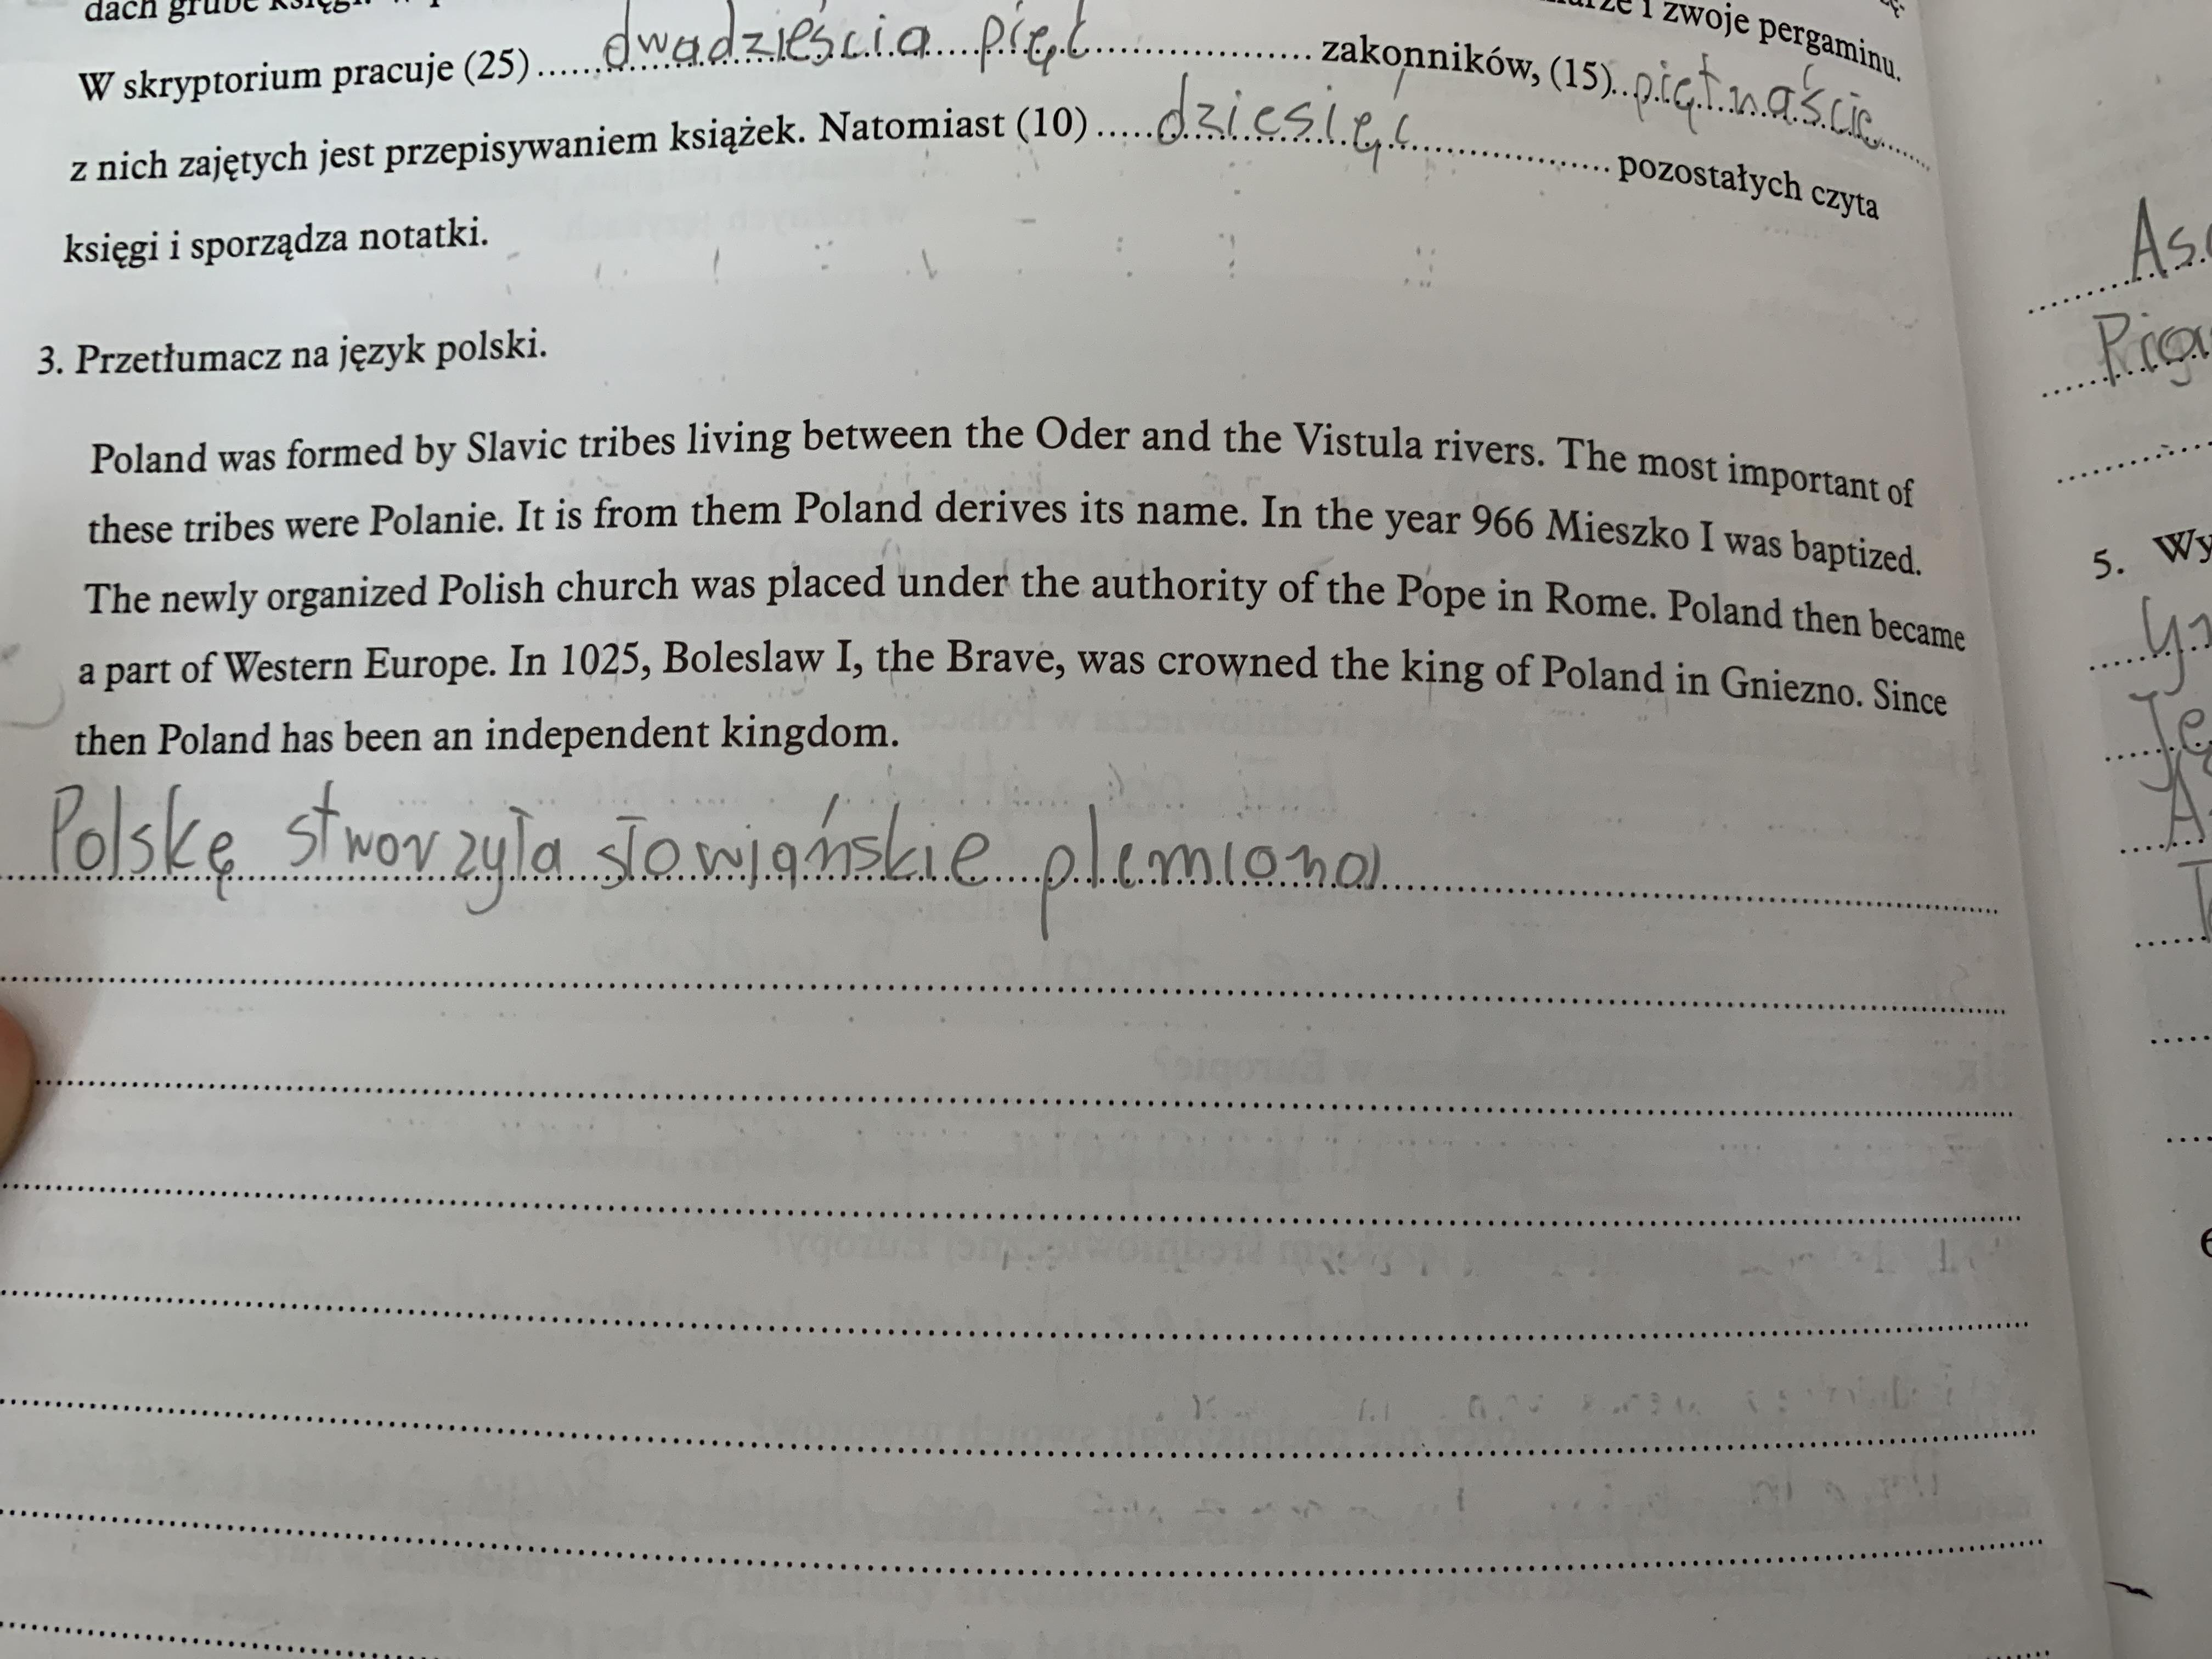 dach grube
W skryptorium pracuje (25) dwadzieścia pięć zakonników, (15) piętnaście
i zwoje pergaminu.
z nich zajętych jest przepisywaniem książek. Natomiast (10) dziesięć pozostałych czyta
księgi i sporządza notatki.
3. Przetłumacz na język polski.
Poland was formed by Slavic tribes living between the Oder and the Vistula rivers. The most important of
these tribes were Polanie. It is from them Poland derives its name. In the year 966 Mieszko I was baptized.
The newly organized Polish church was placed under the authority of the Pope in Rome. Poland then became
a part of Western Europe. In 1025, Boleslaw I, the Brave, was crowned the king of Poland in Gniezno. Since
then Poland has been an independent kingdom.
Polskę stworzyła słowiańskie plemiona
5. Wy